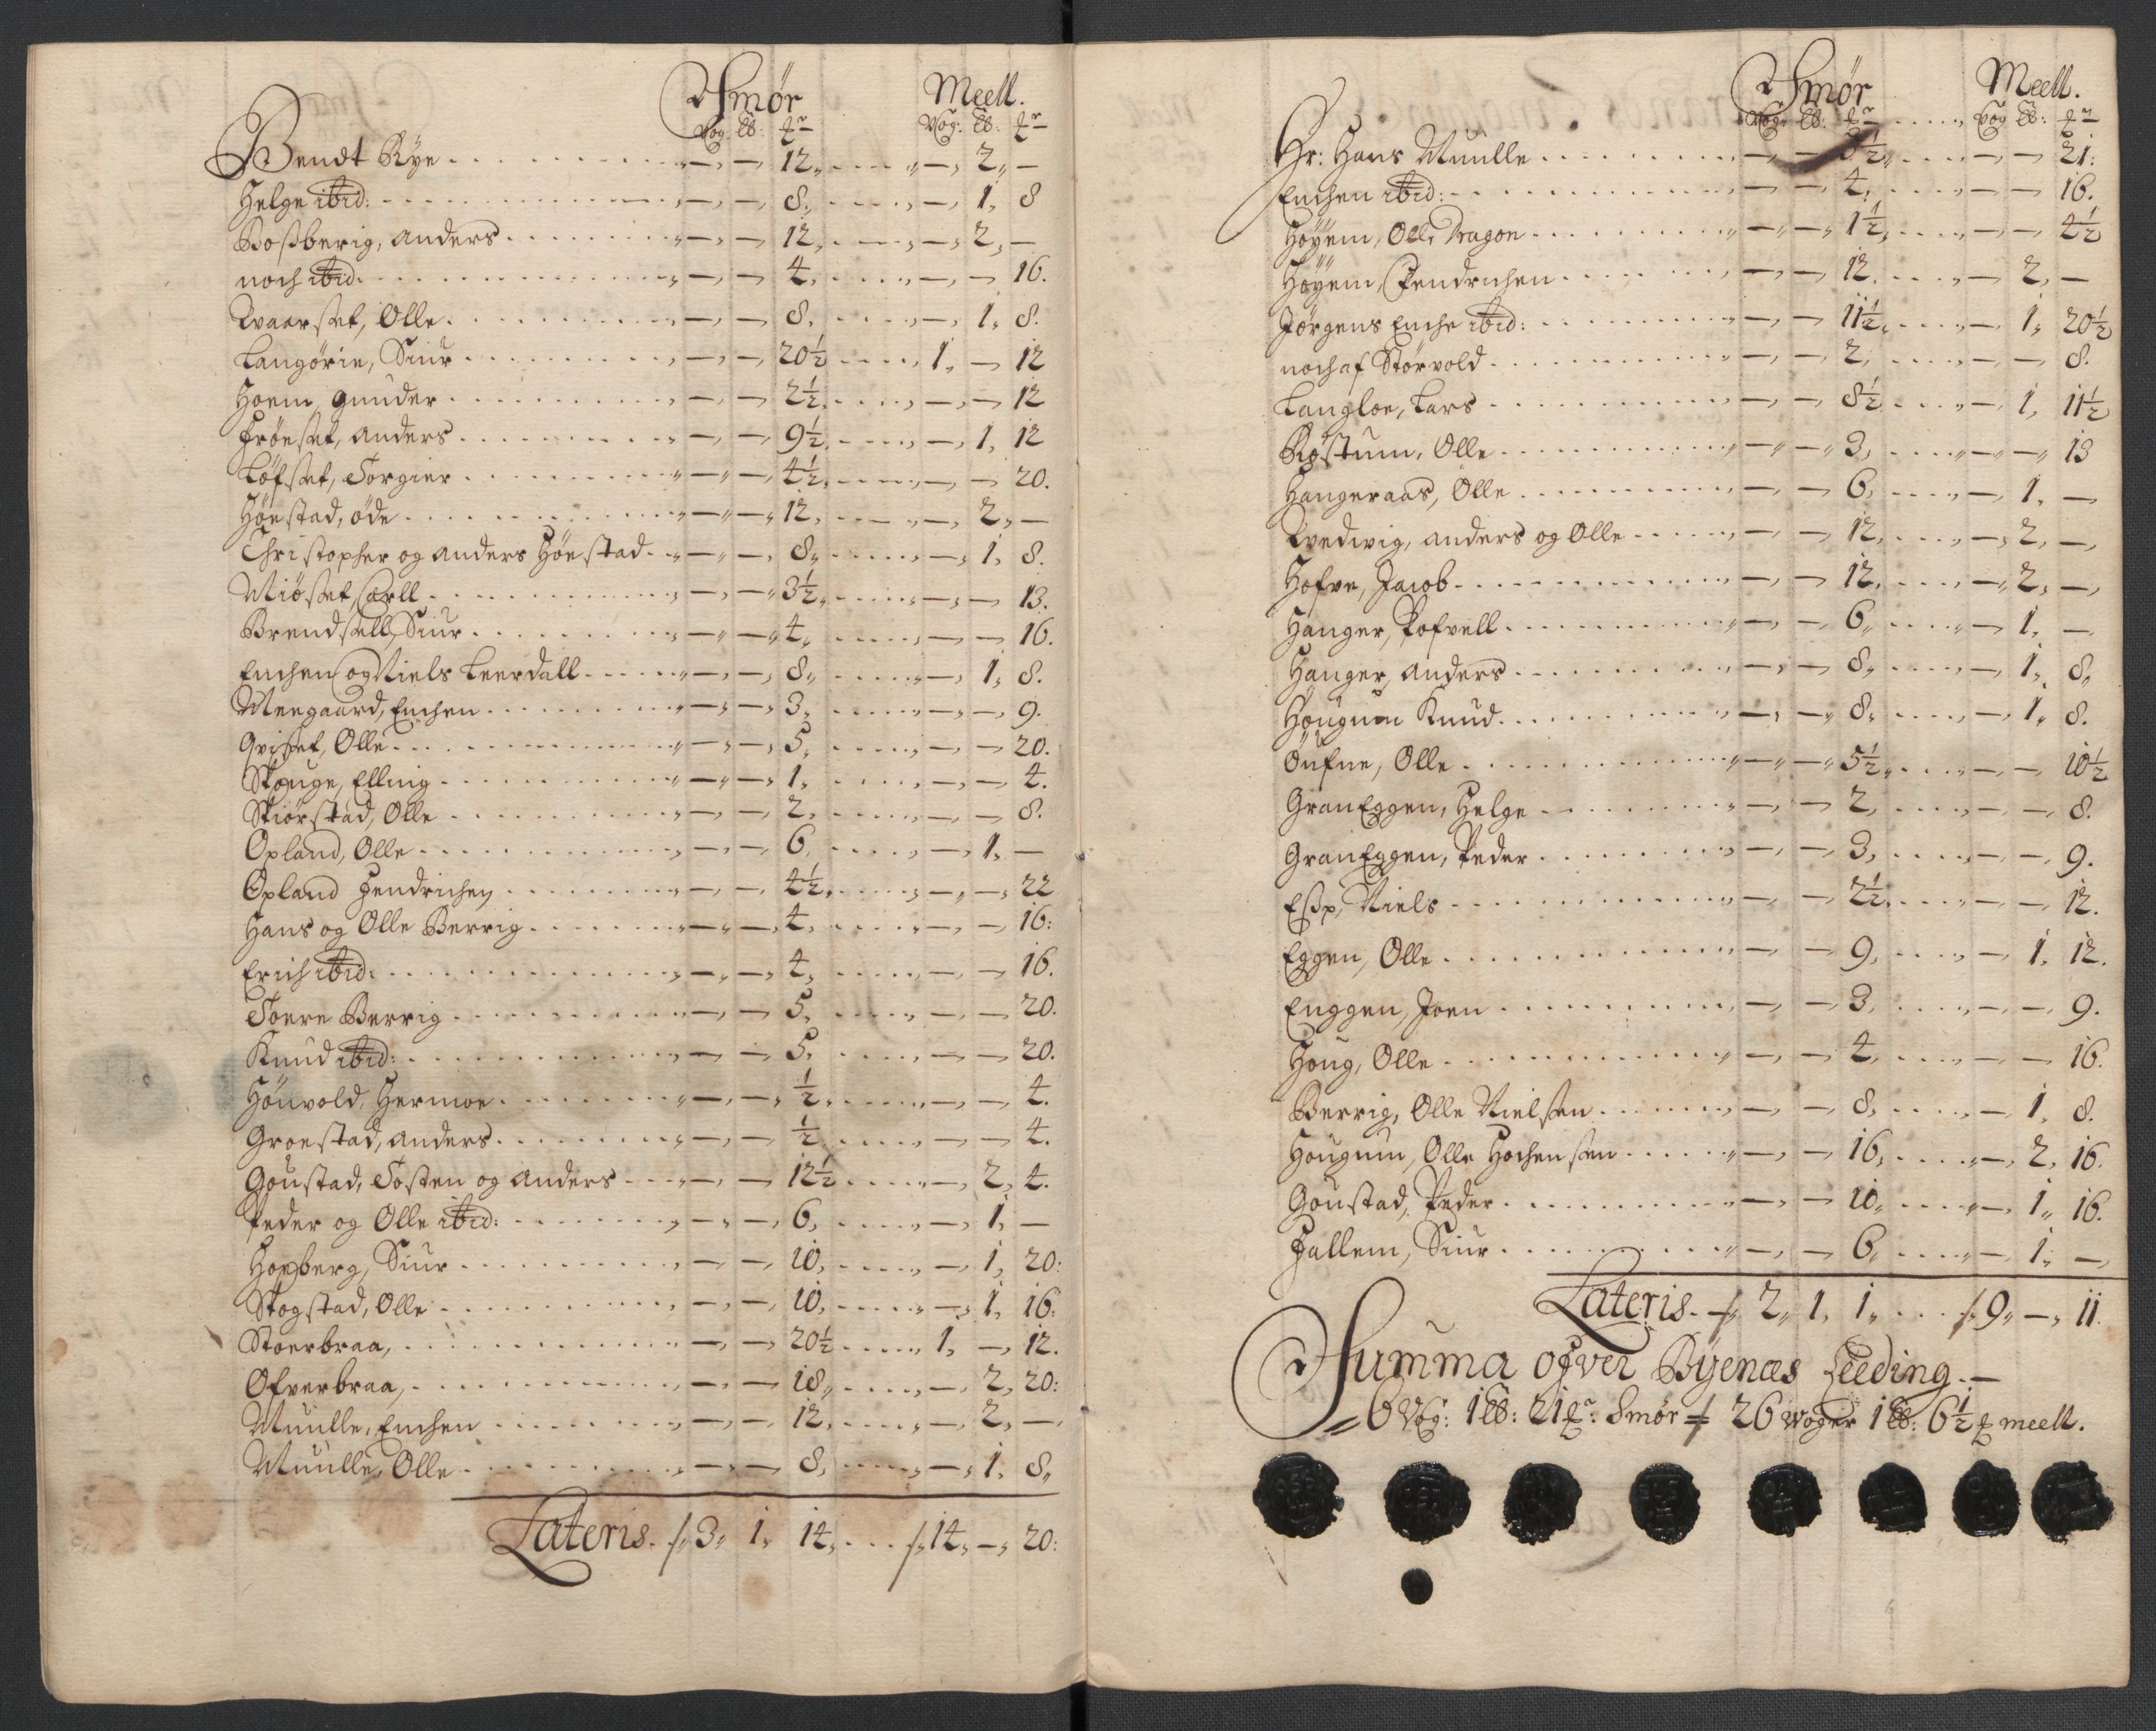 Smør Meell.
Vog: ℔: ₰r Vog: ℔: ₰r
Bendt Rye — — 12 — 2 —
Helge ibid: — — 8 — 1 8
Boßberig, Anders — — 12 — 2 —
noch ibid: — — 4 — — 16.
Qvaarset, Olle — — 8 — 1 8.
Langørin, Siur — — 20½ 1 — 12
Hoem, Gunder — — 2½ — — 12
Frøeset, Anders — — 9½ — 1 12
Løfset, Torgier — — 4½ — — 20.
Høestad, øde — — 12 — 2 —
Christopher og Anders Høestad — — 8 — 1 8.
Miøset, Carll — — 3½ — — 13.
Brendsell, Siur — — 4 — — 16.
Enchen og Niels Leerdall — — 8 — 1 8.
Meegaard, Enchen — — 3 — — 9.
Qviset, Olle — — 5 — — 20.
Skouge, Elling — — 1 — — 4.
Skiørstad, Olle — — 2 — — 8.
Opland, Olle — — 6 — 1 —
Opland Hendrichen — — 4½ — — 22
Hans og Olle Berrig — — 4 — — 16:
Erich ibid: — — 4 — — 16.
Toere Berrig — — 5 — — 20.
Knud ibid: — — 5 — — 20.
Hønvold, Hermoe — — ½ — — 4.
Groestad, Anders — — ½ — — 4.
Goustad, Tosten og Anders — — 12½ — 2 4.
Peder og Olle ibid: — — 6 — 1 —
Hoxberg, Siur — — 10 — 1 20:
Skogstad, Olle — — 10 — 1 16:
Stoerbraa, — — 20½ 1 — 12.
Ofverbraa, — — 18 — 2 20:
Muulle, Enchen — — 12 — 2 —
Muulle, Olle — — 8 — 1 8
Lateris. 3 1 14 14 — 20:
Smør Meell.
Vog: ℔: ₰r Vog ℔: ₰r
Hr: Hans Muulle — — ½ — — 21:
Enchen ibid: — — 4 — — 16.
Høyem, Olle Dragon — — 1½ — — 4½
Høyem, Hendrichen — — 12 — 2 —
Jørgens Enche ibid: — — 11½ — 1 20½
noch af Størvold — — 2 — — 8.
Langloe, Lars — — 8½ — 1 11½
Røstum, Olle — — 3 — — 13
Hangeraas, Olle — — 6 — 1 —
Qvedvig, Anders og Olle — — 12 — 2 —
Hofve, Jacob — — 12 — 2 —
Hanger, Pofvell — — 6 — 1 —
Hanger, Anders — — 8 — 1 8
Hougum Knud — — 8 — 1 8.
Øufne, Olle — — 5½ — — 10½
GranEggen, Helge — — 2 — — 8.
GranEggen, Peder — — 3 — — 9.
Eßp, Niels — — 2½ — — 12.
Eggen, Olle — — 9 — 1 12.
Enggen, Joen — — 3 — — 9.
Houg, Olle — — 4 — — 16.
Berrig, Olle Nielsen — — 8 — 1 8.
Hougum, Olle Hochensen — — 16 — 2 16.
Goustad, Peder — — 10 — 1 16.
Hallem, Siur — — 6 — 1 —
Lateris. 2 1 1 9 — 11
Summa ofver Byenæs Leeding.
6 Vog: 1 ℔: 21 ₰r: Smør 26 Woger 1 ℔: 6½ ₰ meell.